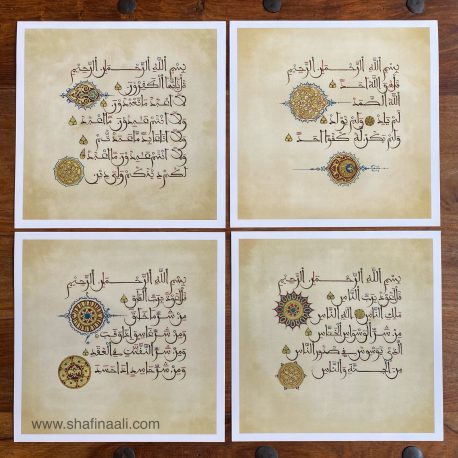 بِسْمِ اللَّهِ الرَّحْمَٰنِ الرَّحِيمِ
قُلْ يَٰأَيُّهَا الْكَٰفِرُونَ
لَا أَعْبُدُ مَا تَعْبُدُونَ
وَلَا أَنتُمْ عَٰبِدُونَ مَا أَعْبُدُ
وَلَا أَنَا عَابِدٌ مَّا عَبَدتُّمْ
وَلَا أَنتُمْ عَٰبِدُونَ مَا أَعْبُدُ
لَكُمْ دِينُكُمْ وَلِيَ دِينِ
بِسْمِ اللَّهِ الرَّحْمَٰنِ الرَّحِيمِ
قُلْ هُوَ اللَّهُ أَحَدٌ
اللَّهُ الصَّمَدُ
لَمْ يَلِدْ وَلَمْ يُولَدْ
وَلَمْ يَكُن لَّهُ كُفُوًا أَحَدٌ
بِسْمِ اللَّهِ الرَّحْمَٰنِ الرَّحِيمِ
قُلْ أَعُوذُ بِرَبِّ الْفَلَقِ
مِن شَرِّ مَا خَلَقَ
وَمِن شَرِّ غَاسِقٍ إِذَا وَقَبَ
وَمِن شَرِّ النَّفَّٰثَٰتِ فِي الْعُقَدِ
وَمِن شَرِّ حَاسِدٍ إِذَا حَسَدَ
بِسْمِ اللَّهِ الرَّحْمَٰنِ الرَّحِيمِ
قُلْ أَعُوذُ بِرَبِّ النَّاسِ
مَلِكِ النَّاسِ إِلَٰهِ النَّاسِ
مِن شَرِّ الْوَسْوَاسِ الْخَنَّاسِ
الَّذِي يُوَسْوِسُ فِي صُدُورِ النَّاسِ
مِنَ الْجِنَّةِ وَالنَّاسِ
www.shafinaali.com